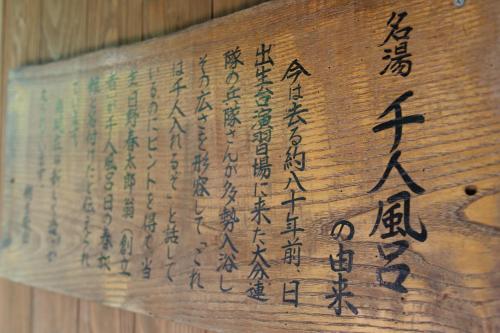 名湯 千人風呂
の由来
今は去る約八十年前、日
出生台演習場に来た大分連
隊の兵隊さんが多勢入浴し
その広さを形容して「これ
は千人入れるぞ」と話して
いるのにヒントを得て当
主日野春太郎翁(創立
者)が千人風呂日の春旅
館と名付けたと伝えられ
ています